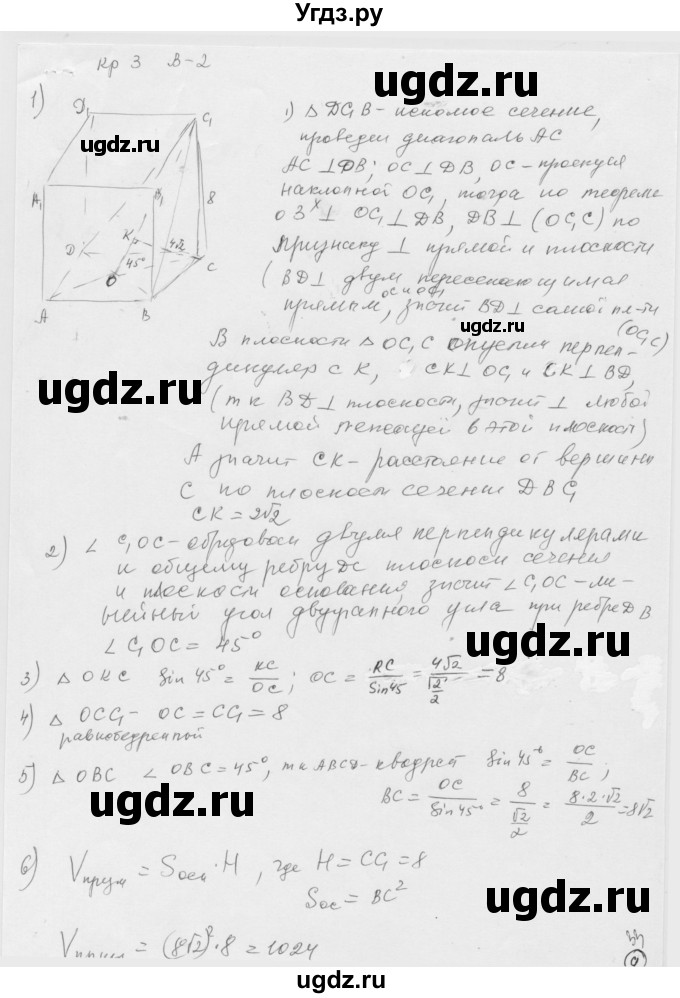 Угдз.ру
кр 3 В-2
1)
D₁ C₁
A₁ B₁ 8
D K 4√2
45° C
O
A B
1) △ DC₁B - искомое сечение,
проведем диагональ AC
AC ⊥ DB; OC ⊥ DB, OC - проекция
наклонной OC₁, тогда по теореме
о 3ˣ ⊥ OC₁ ⊥ DB, DB ⊥ (OC₁C) по
признаку ⊥ прямой и плоскости
(BD ⊥ двум пересекающимся
прямым, OC и OC₁, значит BD ⊥ самой пл-ти
(OC₁C)
В плоскости △ OC₁C опустим перпен-
дикуляр CK, CK ⊥ OC₁ и CK ⊥ BD,
(т к BD ⊥ плоскости, значит ⊥ любой
прямой лежащей в этой плоскости)
А значит CK - расстояние от вершины
C до плоскости сечения DBC₁
CK = 2√2
2) ∠ C₁OC - образован двумя перпендикулярами
к общему ребру плоскости сечения
и плоскости основания, значит ∠ C₁OC - ли-
нейный угол двугранного угла при ребре DB
∠ C₁OC = 45°
3) △ OKC sin 45° = KC/OC; OC = KC/Sin45 = 4√2/(√2/2) = 8
4) △ OCC₁ - OC = CC₁ = 8
равнобедренный
5) △ OBC ∠ OBC = 45°, т к ABCD - квадрат Sin 45° = OC/BC;
BC = OC/Sin45° = 8/(√2/2) = 8·2·√2/2 = 8√2
6) Vпризм = Sосн · H, где H = CC₁ = 8
Sос = BC²
Vпризм = (8√2)² · 8 = 1024
ugdz.ru
ugdz.ru
ugdz.ru
ugdz.ru
ugdz.ru
ugdz.ru
ugdz.ru
ugdz.ru
ugdz.ru
ugdz.ru
ugdz.ru
ugdz.ru